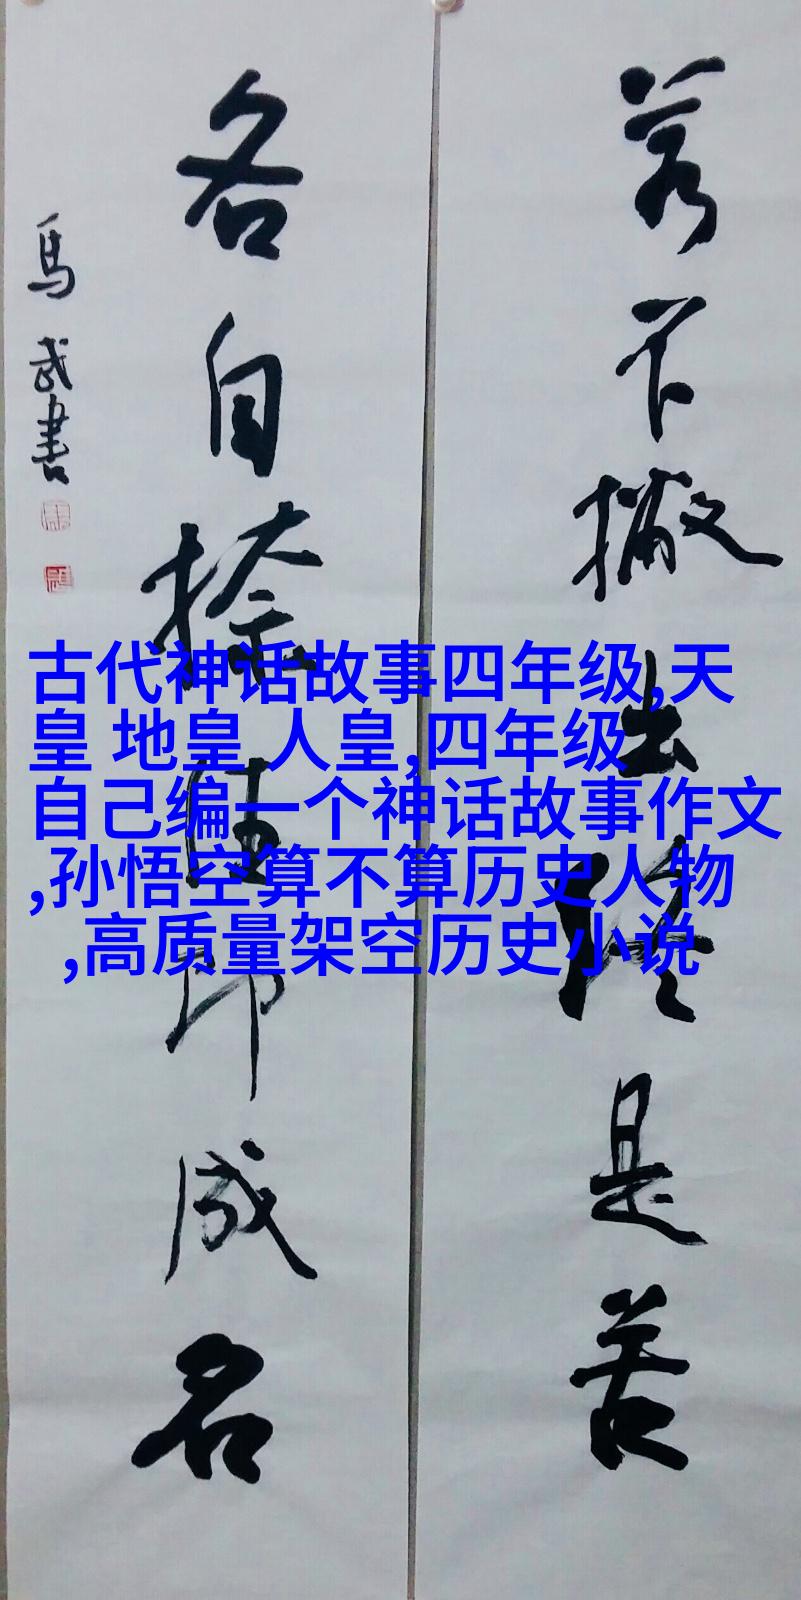 若不撇出終是苦
各自捺住即成名
馬武書
古代神话故事四年级,天
皇 地皇 人皇,四年级
自己编一个神话故事作文
,孙悟空算不算历史人物
,高质量架空历史小说